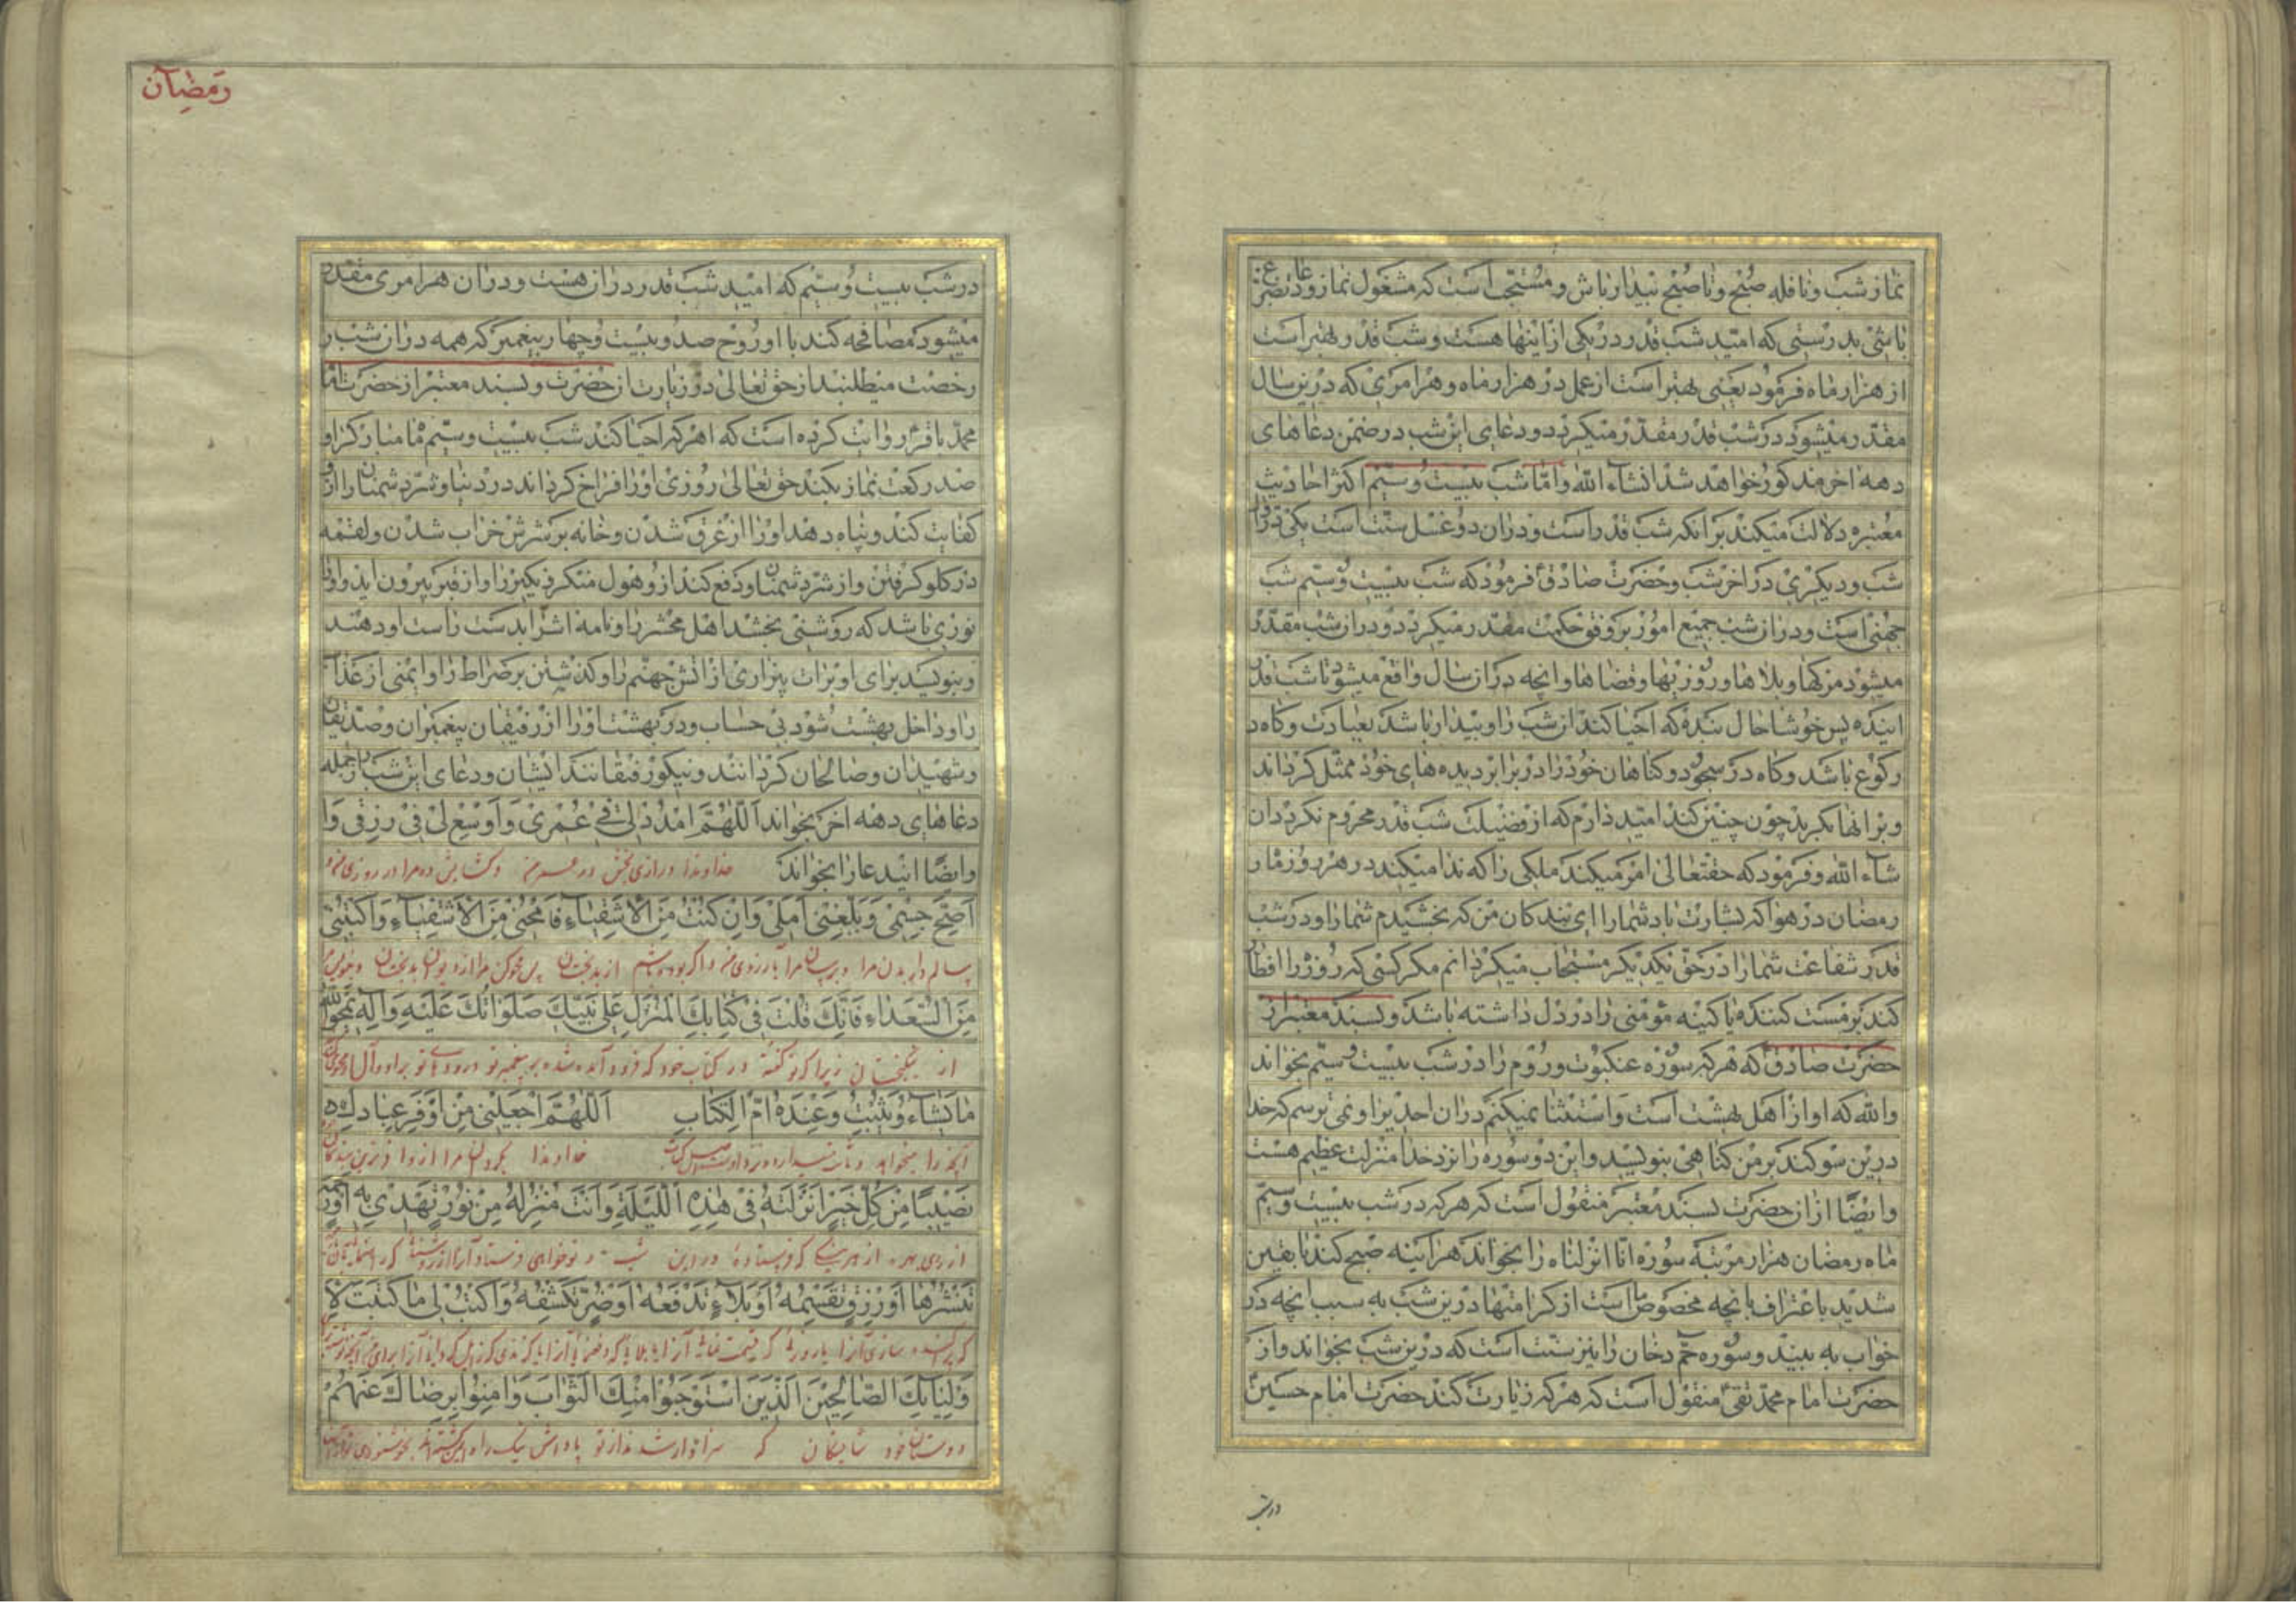 نماز شب و نافله صبح و تا صبح بیدار باش و مستحب است که مشغول نماز و دعا و تضرع
باشی بدرستی که امید شب قدر در یکی از اینها هست و شب قدر بهتر است
از هزار ماه فرمود یعنی بهتر است از عمل در هزار ماه و هر امری که درین سال
مقدر میشود در شب قدر مقدر میگردد و دعای این شب در ضمن دعاهای
دهه اخر مذکور خواهد شد انشاء الله و اما شب بیست و سیم اکثر احادیث
معتبره دلالت میکند بر انکه شب قدر است و در ان دو غسل سنت است یکی در اول
شب و دیگری در اخر شب و حضرت صادق فرمود که شب بیست و سیم شب
جهنی است و در ان شب جمیع امور بر وفق حکمت مقدر میگردد و در ان شب مقدر
میشود مرکها و بلاها و روزیها و قضاها و انچه در ان سال واقع میشود تا شب قدر
اینده پس خوشا حال بنده که احیا کند ان شب را و بیدار باشد بعبادت و کاه در
رکوع باشد و کاه در سجود و کناهان خود را در برابر دیده های خود ممثل کرداند
و بر انها بکرید چون چنین کند امید دارم که از فضیلت شب قدر محروم نکردد ان
شاء الله و فرمود که حقتعالی امر میکند ملکی را که ندا میکند در هر روز ماه
رمضان در هوا که بشارت باد شما را ای بندکان من که بخشیدم شما را و در شب
قدر شفاعت شما را در حق یکدیکر مستجاب میکردانم مکر کسی که روزه را افطار
کند بر مست کننده یا کینه مؤمنی را در دل داشته باشد و بسند معتبر از
حضرت صادق که هر که سوره عنکبوت و روم را در شب بیست و سیم بخواند
والله که او از اهل بهشت است و استثنا نمیکنم در ان احدیرا و نمی ترسم که خدا
درین سوکند بر من کناهی بنویسد و این دو سوره را نزد خدا منزلت عظیم هست
و ایضا از ان حضرت بسند معتبر منقول است که هر که در شب بیست و سیم
ماه رمضان هزار مرتبه سوره انا انزلناه را بخواند هر اینه صبح کند با یقین
شدید باعتراف بانچه مخصوص ما است از کرامتها درین شب به سبب انچه در
خواب به بیند و سوره حم دخان را نیز سنت است که درین شب بخواند و از
حضرت امام محمد تقی منقول است که هر که زیارت کند حضرت امام حسین
در شب
رمضان
در شب بیست و سیم که امید شب قدر در ان هست و در ان هر امری مقدر
میشود مصافحه کند با او روح صد و بیست و چهار پیغمبر که همه در ان شب
رخصت میطلبند از حق تعالی در زیارت ان حضرت و بسند معتبر از حضرت امام
محمد باقر روایت کرده است که هر که احیا کند شب بیست و سیم ماه مبارک را و
صد رکعت نماز بکند حق تعالی روزی او را فراخ کرداند در دنیا و شر دشمنان را از او
کفایت کند و پناه دهد او را از غرق شدن و خانه بر سرش خراب شدن و لقمه
در کلو کرفتن و از شر و دفع کند از او هول منکر و نکیر را و از قبر بیرون اید و او را
نوری باشد که روشنی بخشد اهل محشر را و نامه اش را بدست راست او دهند
و بنویسد برای او برات بیزاری از اتش جهنم را و کذشتن بر صراط را و ایمنی از عذاب
را و داخل بهشت شود بی حساب و در بهشت او را از رفیقان پیغمبران و صدیقان
و شهیدان و صالحان کردانند و نیکو رفیقانند ایشان و دعای این شب از جمله
دعاهای دهه اخر بخواند اَللّٰهُمَّ امْدُدْ لِی فِی عُمْرِی وَاَوْسِعْ لِی فِی رِزْقِی وَا
وایضا اینید عا را بخواند خداوندا درازی بخش در عمر من و کشایش ده مرا در روزی من و
اَصِحَّ جِسْمِی وَبَلِّغْنِی اَمَلِی وَاِنْ کُنْتُ مِنَ الْاَشْقِیَاءِ فَامْحُنِی مِنَ الْاَشْقِیَاءِ وَاکْتُبْنِی
سالم دار بدن مرا و برسان مرا بآرزوی من و اکر بوده باشم از بدبختان پس محو کن مرا از بدبختان و بنویس مرا
مِنَ السُّعَدَاءِ فَاِنَّکَ قُلْتَ فِی کِتَابِکَ الْمُنْزَلِ عَلٰی نَبِیِّکَ صَلَوَاتُکَ عَلَیْهِ وَآلِهِ یَمْحُو اللّٰهُ
از نیکبختان زیرا که تو کفته در کتاب خود که فرود آمده شده بر پیغمبر تو درودهای تو بر او و آل او
مَا یَشَاءُ وَیُثْبِتُ وَعِنْدَهُ اُمُّ الْکِتَابِ اَللّٰهُمَّ اجْعَلْنِی مِنْ اَوْفَرِ عِبَادِکَ
انچه را میخواهد و خداوندا بکردان مرا از
نَصِیْبًا مِنْ کُلِّ خَیْرٍ اَنْزَلْتَهُ فِی هٰذِهِ اللَّیْلَةِ وَاَنْتَ مُنْزِلُهُ مِنْ نُوْرٍ تَهْدِی بِهِ اَوْ رَحْمَةٍ
از روی بهره از هر نیکی که فرستاده در این شب و تو خواهی فرستاد آنرا از
تَنْشُرُهَا اَوْ رِزْقٍ تَقْسِمُهُ اَوْ بَلَاءٍ تَدْفَعُهُ اَوْ ضُرٍّ تَکْشِفُهُ وَاکْتُبْ لِی مَا کَتَبْتَ لِاَ
وْلِیَائِکَ الصَّالِحِیْنَ الَّذِیْنَ اسْتَوْجَبُوا مِنْکَ الثَّوَابَ وَاٰمَنُوا بِرِضَاکَ عَنْهُمْ
دوستان خود شایستکان که سزاوار شدند از تو پاداش نیک را